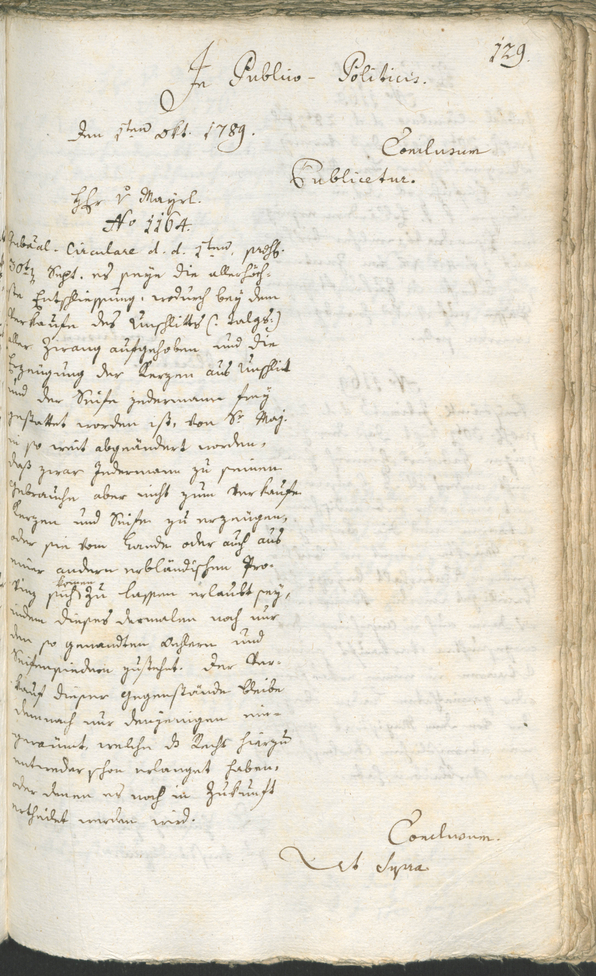 129.
In Publico-Politicis.
Den 1ten Okt. 1789.
Conclusum
Publicetur.
Hr v Mayrl.
No 1164.
Gubernial-Circulare d. d. 1ten, praes.
30ten Sept. es seye die allerhöch-
ste Entschliessung, wodurch bey dem
Verkaufe des Unschlitts (: Talgs:)
aller Zwang aufgehoben und die
Erzeugung der Kerzen aus Unschlitt
und der Seife jedermann frey
gestattet worden ist, von Sr Maj.
in so weit abgeändert worden,
daß zwar Jedermann zu seinem
Gebrauche aber nicht zum Verkaufe
Kerzen und Seife zu erzeugen,
oder sie vom Lande oder auch aus
einer andern erbländischen Pro-
vinz sich kommen zu lassen erlaubt sey,
indem dieses dermalen noch nur
den so genandten Oehlern und
Seifensiedern zusteht. Der Ver-
kauf dieser Gegenstände bleibe
demnach nur denjenigen ein-
geräumt, welche das Recht hierzu
entweder schon erlanget haben,
oder denen es noch in Zukunft
ertheilet werden wird.
Conclusum.
Ut Supra